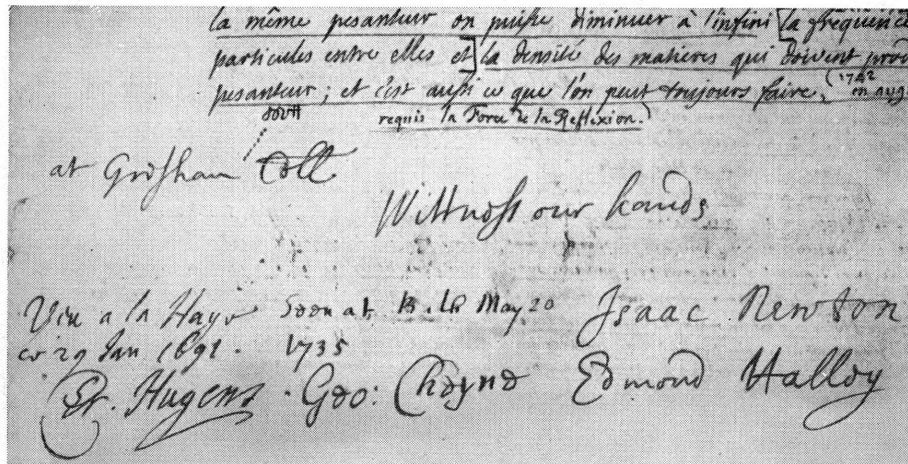 la même pesanteur on puisse diminuer à l'infini [la fréquence
particules entre elles et] la densité des matieres qui doivent
pesanteur; et c'est aussi ce que l'on peut toujours faire. (1742
requis la Force de la Reflexion.)
at Gresham Coll
Wittness our hands
Veu a la Haye
ce 29 Jan 1691.
Seen at May 20
1735
Isaac Newton
Hugens
Geo: Cheyne
Edmond Halley